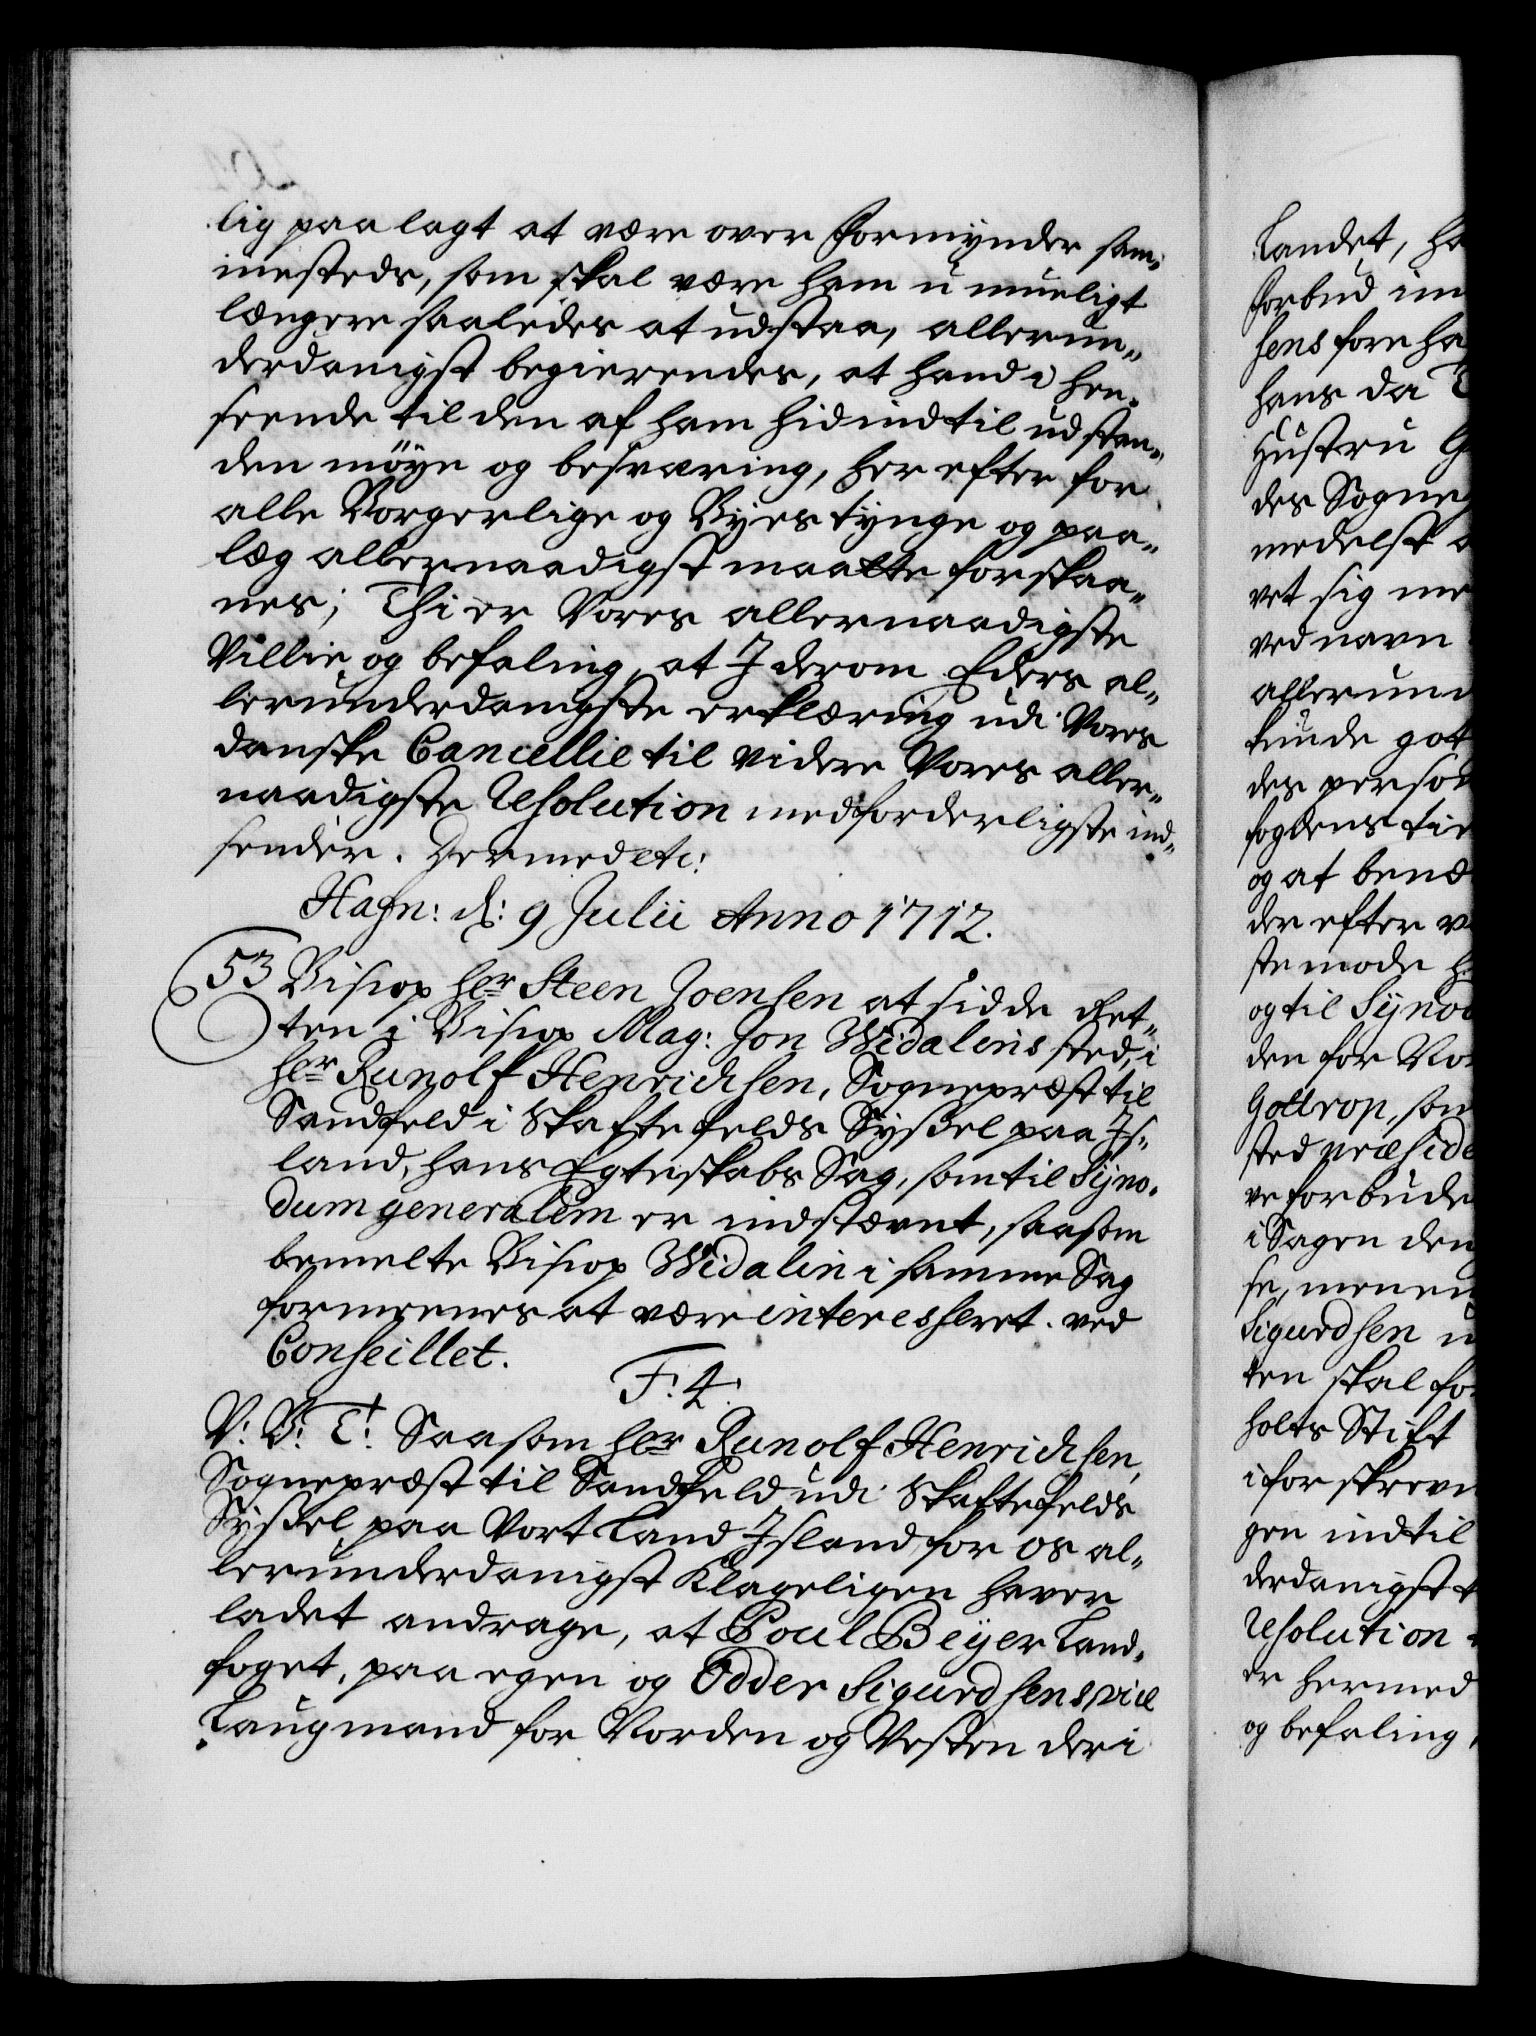 lig paalagt at være over Formynder sam¬
mesteds, som skal være ham u mueligt
længere saaledes at udstaa, allerun¬
derdanigst begierendes, at hand i hen¬
seende til den af ham hidindtil udstan¬
den möye og besværing, her efter for
alle Borgerlige og Byes tynge og paa¬
læg allernaadigst maatte forskaa¬
nes; Thi er Vores allernaadigste
Villie og befaling, at J derom Eders al¬
lerunderdanigste erklæring udi Vores
danske Cancellie til videre Vores aller¬
naadigste Resolution medforderligste ind¬
sender. Dermed etc:
Hafn: d: 9 Julii Anno 1712.
53 Biskop her Steen Joensen at sidde Ret¬
ten i Biskop Mag: Jon Widalins sted, i
her Runolf Henrichsen, Sognepræst til
Sandfeld i Skaftefelds Syssel paa Js¬
land, hans Egteskabs Sag, som til Syno¬
dum generalem er indstævnt, saasom
bemelte Biskop Widalin i samme Sag
formeenes at være interesseret. ved
Conseillet.
F: 4.
V: G: T: Saasom her Runolf Henrichsen,
Sognepræst til Sandfeld udi Skaftefelds
Syssel paa Vort Land Jsland, for os al¬
lerunderdanigst Klageligen haver
ladet andrage, at Poul Beyer Land¬
foget, paa egen og Odder Sigurdsens vice
Laugmand for Norden og Vesten der i
Landet, ha
forbud im
sens foreha
hans da
Hustru G
des Sogne
medelst a
vet sig me
ved navn
allerund
kunde got
des person
fogdens tie
og at benæ
der efter v
ste mode h
og til Synod
den for No
Gottrop, som
sted præside
ve forbude
i Sagen den
se, meneu
Sigurdsen u
ten skal fo
holts Stift
i forskrevn
gen indtil
derdanigst
Resolution
er hermed
og befaling,